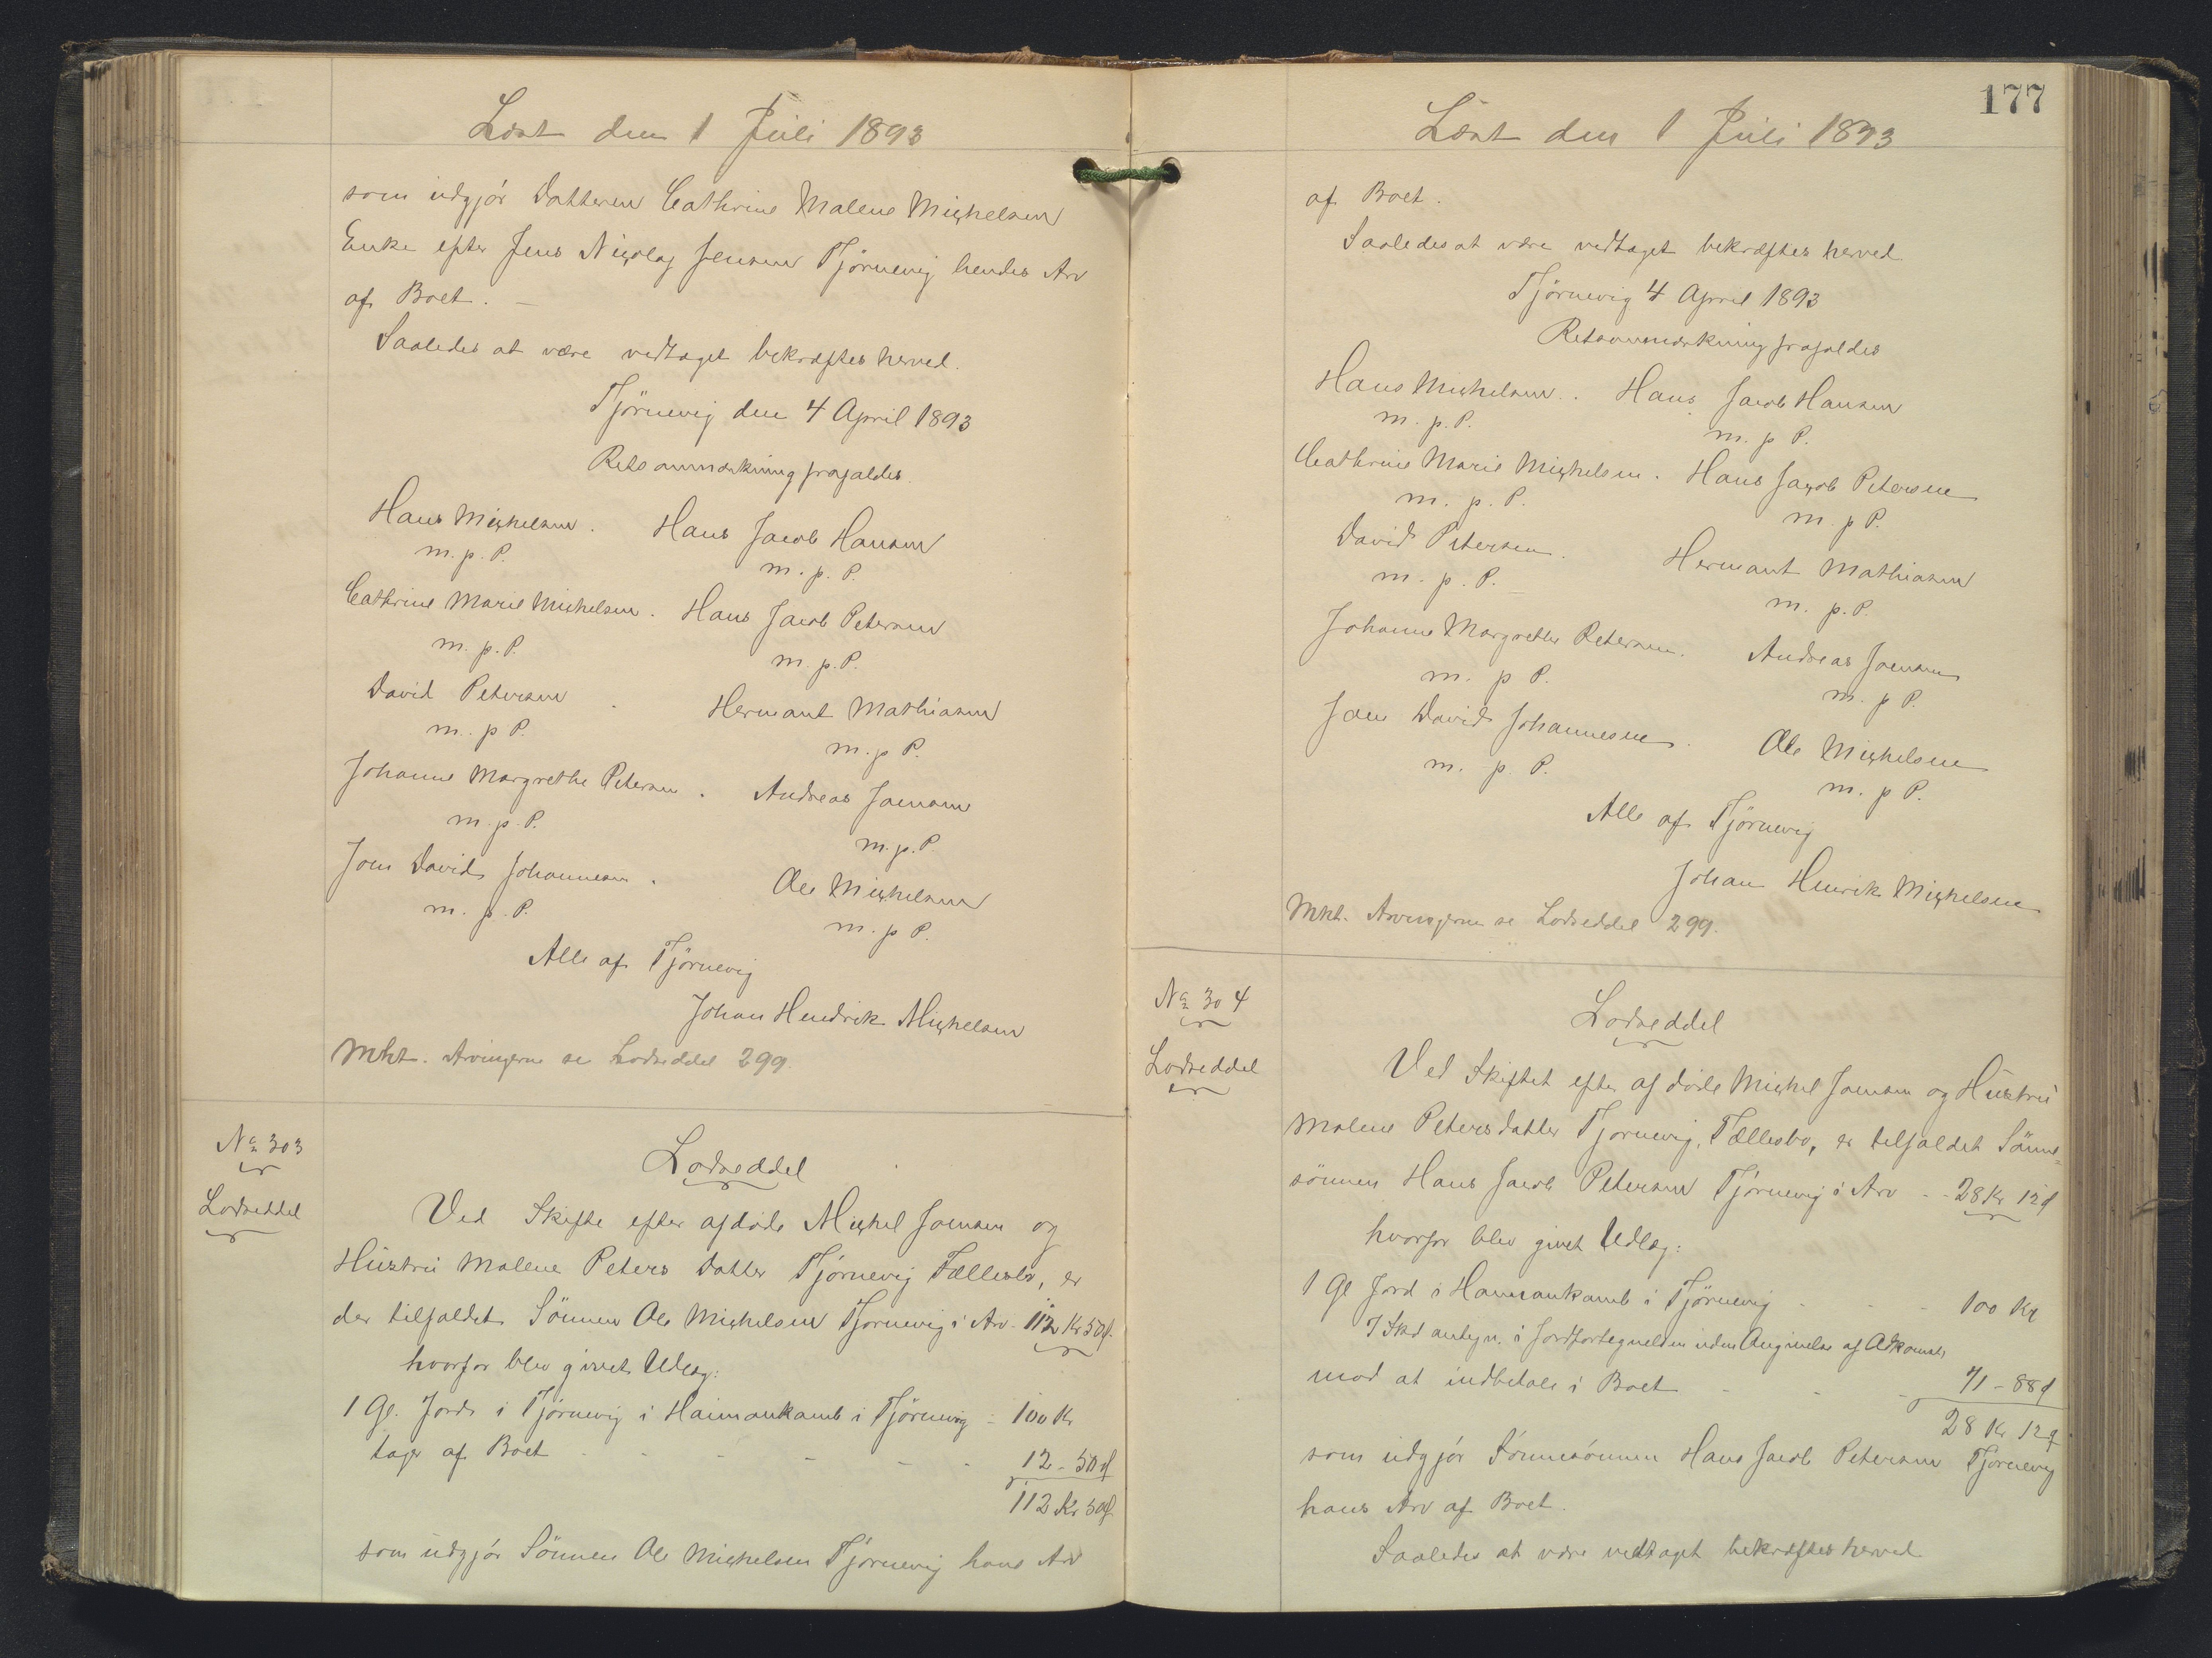 Læst den 1 Juli 1893
som udgjør Datteren Cathrine Malene Michelsen
Enke efter Jens Nicolaj Jensen Tjørnevig hendes Arv
af Boet. —
Saaledes at være vedtaget bekræftes herved.
Tjørnevig den 4 April 1893
Retsanmærkning frafaldes.
Hans Michelsen. Hans Jacob Hansen
m. p. P. m. p. P.
Cathrine Marie Michelsen. Hans Jacob Petersen
m. p. P. m. p. P.
David Petersen. Hermant Mathiasen
m. p P. m. p P.
Johanne Margrethe Petersen. Andreas Joensen
m. p. P. m. p. P
Joen David Johannesen. Ole Michelsen
m. p. P. m. p P.
Alle af Tjørnevig
Johan Hendrik Michelsen
Mkt. Arvingerne se Lodseddel 299.
No 303
Lodseddel
Lodseddel
Ved Skifte efter afdøde Michel Joensen og
Hustru Malene Peters Datter Tjørnevig Fællesbo, er
der tilfaldet Sønnen Ole Michelsen Tjørnevig i Arv - 112 Kr 50 ø.
hvorfor blev givet Udlæg:
1 Gl. Jord i Tjørnevig i Haimankamb i Tjørnevig - 100 Kr
tager af Boet - - - - 12 - 50 ø
112 Kr 50 ø
som udgjør Sønnen Ole Michelsen Tjørnevig hans Arv
177
Læst den 1 Juli 1893
af Boet.
Saaledes at være vedtaget bekræftes herved
Tjørnevig 4 April 1893
Retsanmærkning frafaldes
Hans Michelsen. Hans Jacob Hansen
m. p. P. m. p P.
Cathrine Marie Michelsen. Hans Jacob Petersen
m. p. P. m. p P.
David Petersen. Hermant Mathiasen
m. p. P. m. p. P.
Johanne Margrethe Petersen. Andreas Joensen
m. p P. m. p P.
Joen David Johannesen. Ole Michelsen
m. p. P. m. p P.
Alle af Tjørnevig
Johan Henrik Michelsen
Mkt. Arvingerne se Lodseddel 299.
No 304
Lodseddel
Lodseddel
Ved Skiftet efter afdøde Michel Joensen og Hustru
Malene Petersdatter Tjørnevig, Fællesbo, er tilfaldet Sønne-
sønnen Hans Jacob Petersen Tjørnevig i Arv - - 28 Kr 12 ø
hvorfor blev givet Udlæg:
1 Gl Jord i Hamrankamb i Tjørnevig - - - 100 Kr
7 Skd antegn. i Jordfortegnelden uden Angivelse af Adkomst
mod at indbetale i Boet - - - 71 - 88 ø
28 Kr 12 ø
som udgjør Sønnesønnen Hans Jacob Petersen Tjørnevig
hans Arv af Boet.
Saaledes at være vedtaget bekræftes herved